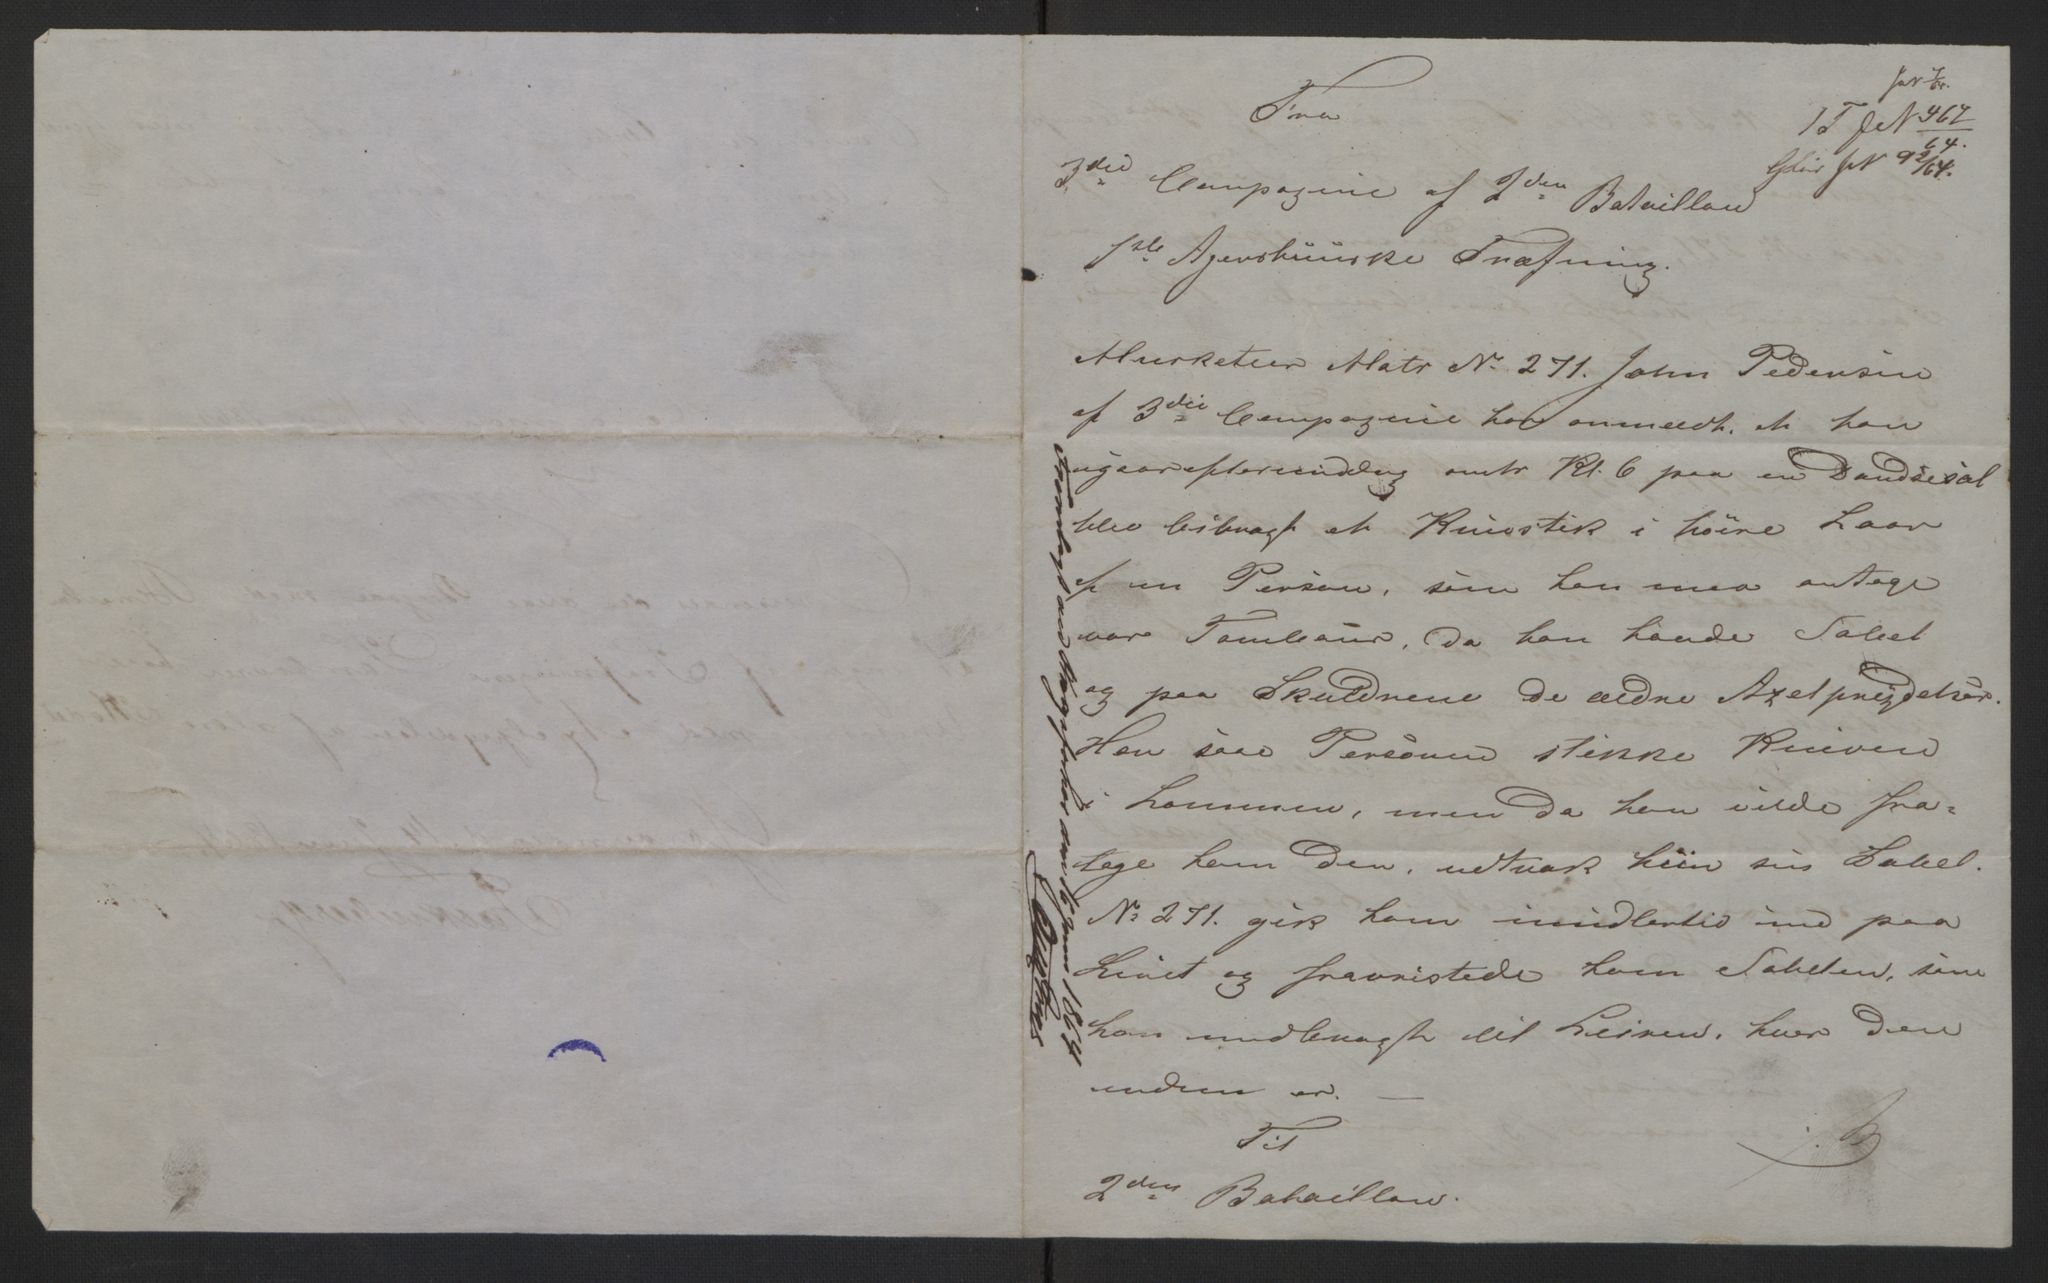 Fra
JN 467
64.
JN 92/64.
3die Compagnie af 2den Bataillon
1ste Agershuuske Træfning.
Musketeer Matr No 271. John Pedersen
af 3die Compagnie har anmeldt, at han
igaareftermiddag omtr Kl. 6 paa en Dandsesal
blev bibragt et Knivstik i høire Laar
af en Person, som han maa antage
var Tambour, da han havde Sabel
og paa Skuldrene de ældre Axelprydelser.
Han saae Personen stikke Kniven
i Lommen, men da han vilde fra-
tage ham den, udtrak hiin sin Sabel.
No 271. gik ham imidlertid ind paa
Livet og fravristede ham Sabelen, som
han medbragte til Leiren, hvor den
endnu er. —
Til
2den Bataillon.
Fremlagt ved Krigsforhør den 16 Juni 1864